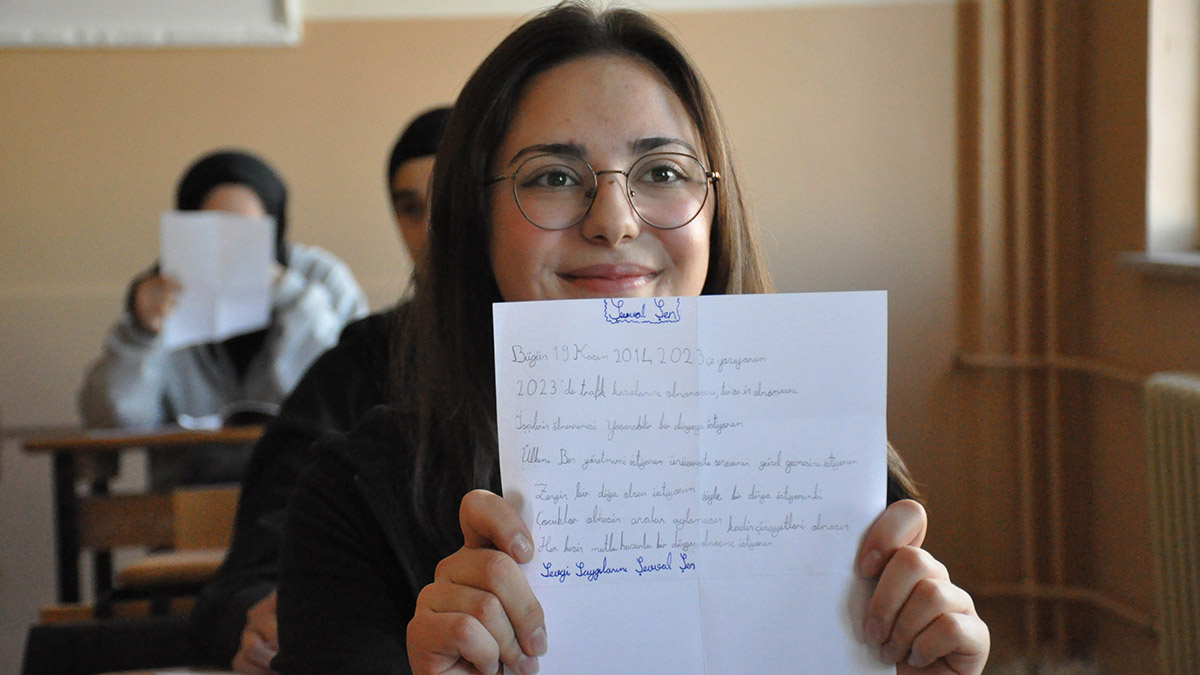 Şevval Şen
Bügün 19 Kasım 2014 2023çe yazıyorum
2023'de trafik kazalarını olmamasını, terörün olmamasını
İşçilerin ölmemesi Yaşanabilir bir dünyaya istiyorum
Ülkeni Ben yönetmemi istiyorum üniversite sınavının güzel geçmesini istiyorum
Zengin bir dünya olsun istiyorum şöyle bir dünya istiyorumki
Çocuklar ölmesin analar ağlamasın kadın olmasın
Her kesin mutlu huzurlu bir dünyaya olmasını istiyorum
Sevgi Saygılarımı Şevval Şen